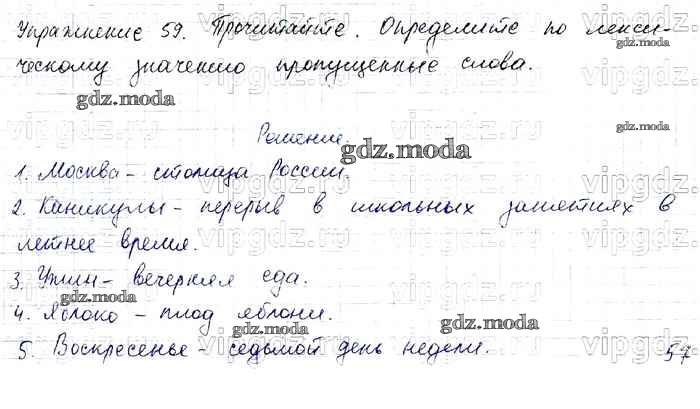 Упражнение 59. Прочитайте. Определите по лекси-
ческому значению пропущенные слова.
Решение.
1. Москва – столица России.
2. Каникулы – перерыв в школьных занятиях в
летнее время.
3. Ужин – вечерняя еда.
4. Яблоко – плод яблони.
5. Воскресенье – седьмой день недели.
57
gdz.moda
gdz.moda
gdz.moda
gdz.moda
gdz.moda
gdz.moda
gdz.moda
gdz.moda
vipgdz.ru